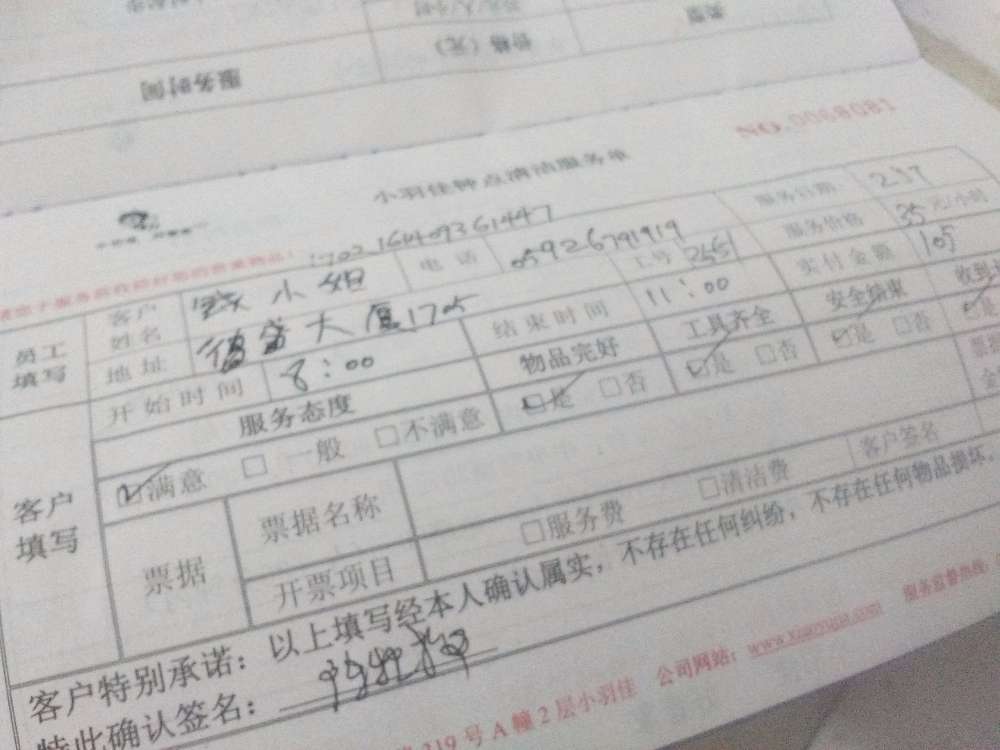 服务时间
价格（元）
NO.0068081
小羽佳钟点清洁服务单
170216409361447
员工填写
客户姓名 小姐 电话 05926791919 工号 2551 服务日期 2.17
地址 大厦1705 服务价格 35元/小时
开始时间 8：00 结束时间 11：00 实付金额 105
客户填写
服务态度 物品完好 工具齐全 安全结束 收到
☑满意 □一般 □不满意 ☑是 □否 ☑是 □否 ☑是 □否 ☑是
票据 票据名称 客户签名
开票项目 □服务费 □清洁费
客户特别承诺：以上填写经本人确认属实，不存在任何纠纷，不存在任何物品损坏。
特此确认签名：
219号A幢2层小羽佳 公司网站：www.xiaoyujia.com 服务监督热线：